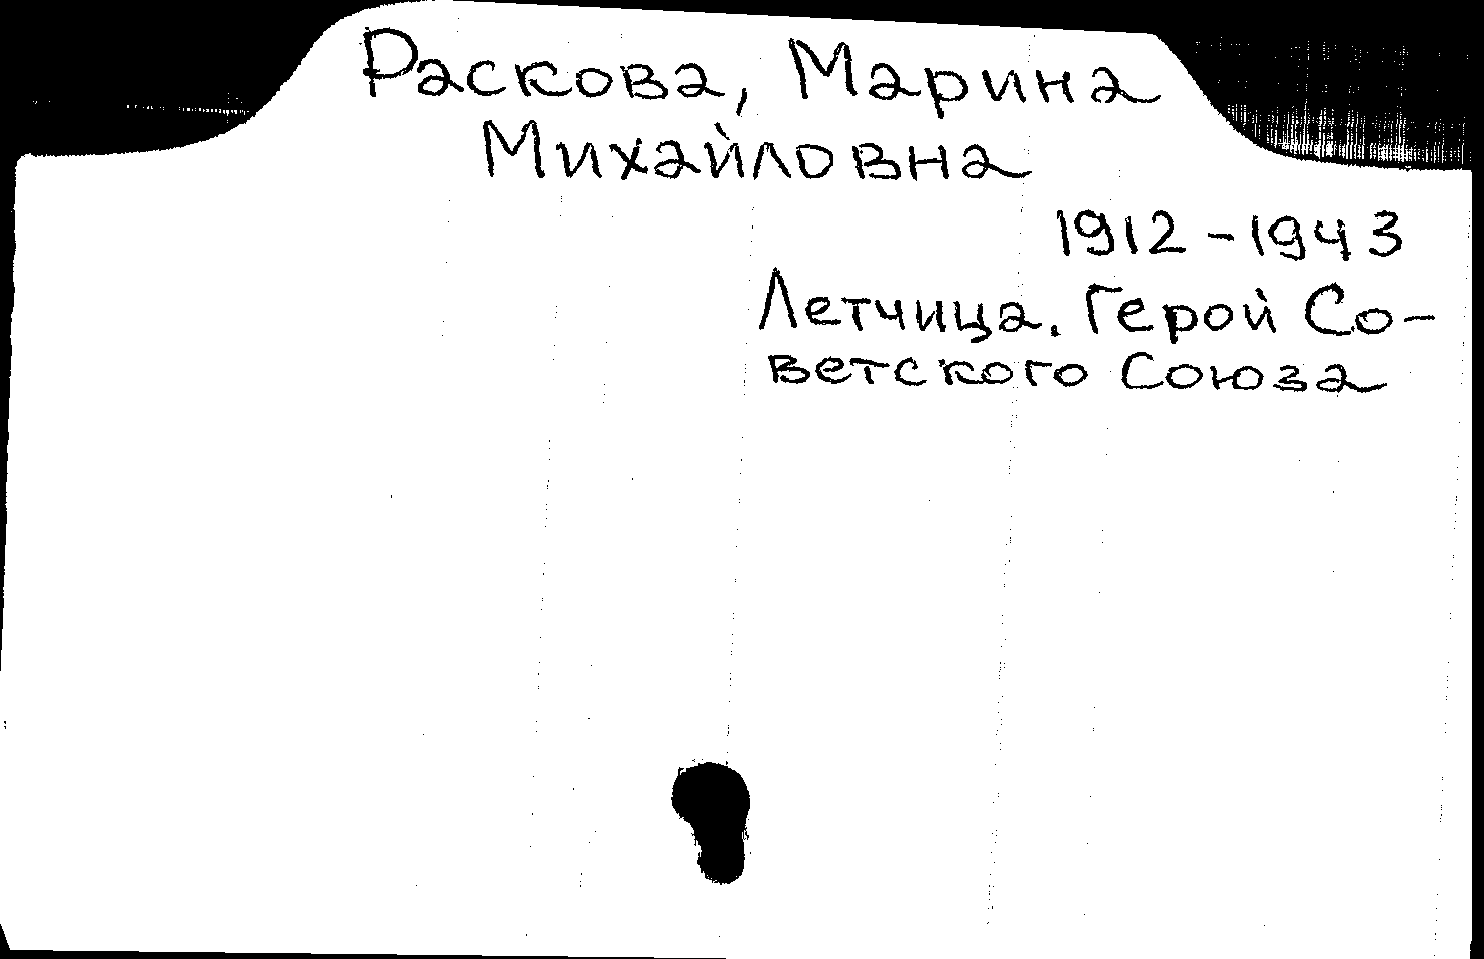 Раскова, Марина
Михайловна
1912-1943
Летчица. Герой Со-
ветского Союза